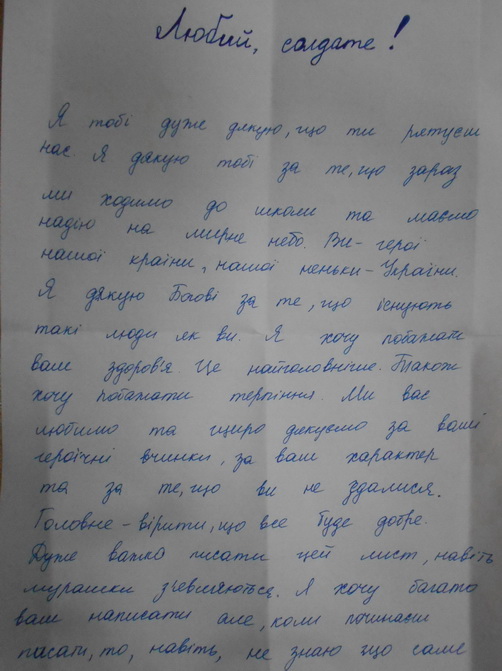 Любий, солдате!
Я тобі дуже дякую, що ти рятуєш
нас. Я дякую тобі за те, що зараз
ми ходимо до школи та маємо
надію на мирне небо. Ви - герої
нашої країни, нашої неньки - України.
Я дякую Богові за те, що існують
такі люди як ви. Я хочу побажати
вам здоров'я. Це найголовніше. Також
хочу побажати терпіння. Ми вас
любимо та щиро дякуємо за ваші
героїчні вчинки, за ваш характер
та за те, що ви не здалися.
Головне - вірити, що все буде добре.
Дуже важко писати цей лист, навіть
мурашки з'являються. Я хочу багато
вам написати але, коли починаєш
писати, то, навіть, не знаю що саме